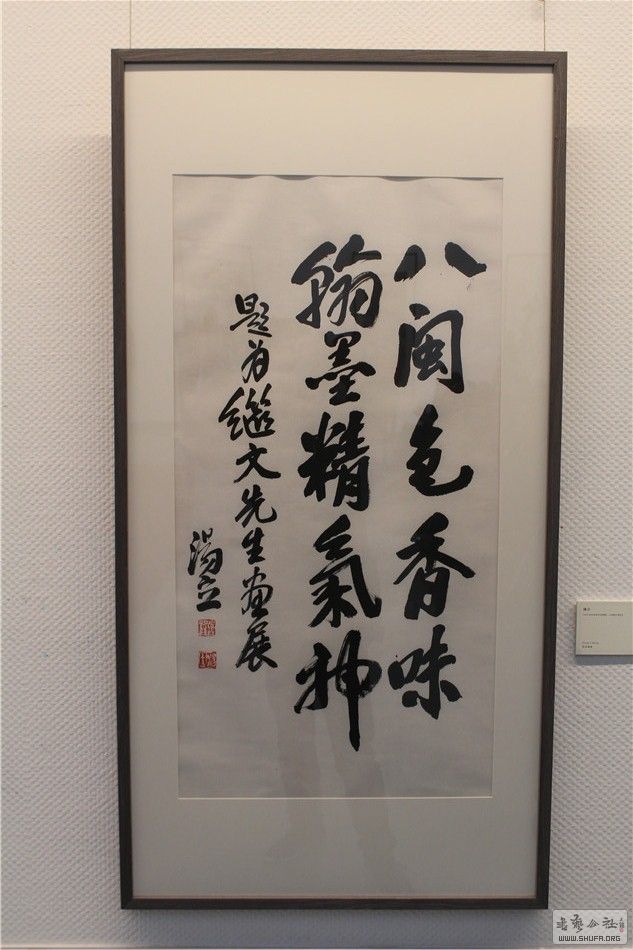 八闽色香味
翰墨精氣神
题为继文先生画展
湯立
书艺公社
WWW.SHUFA.ORG